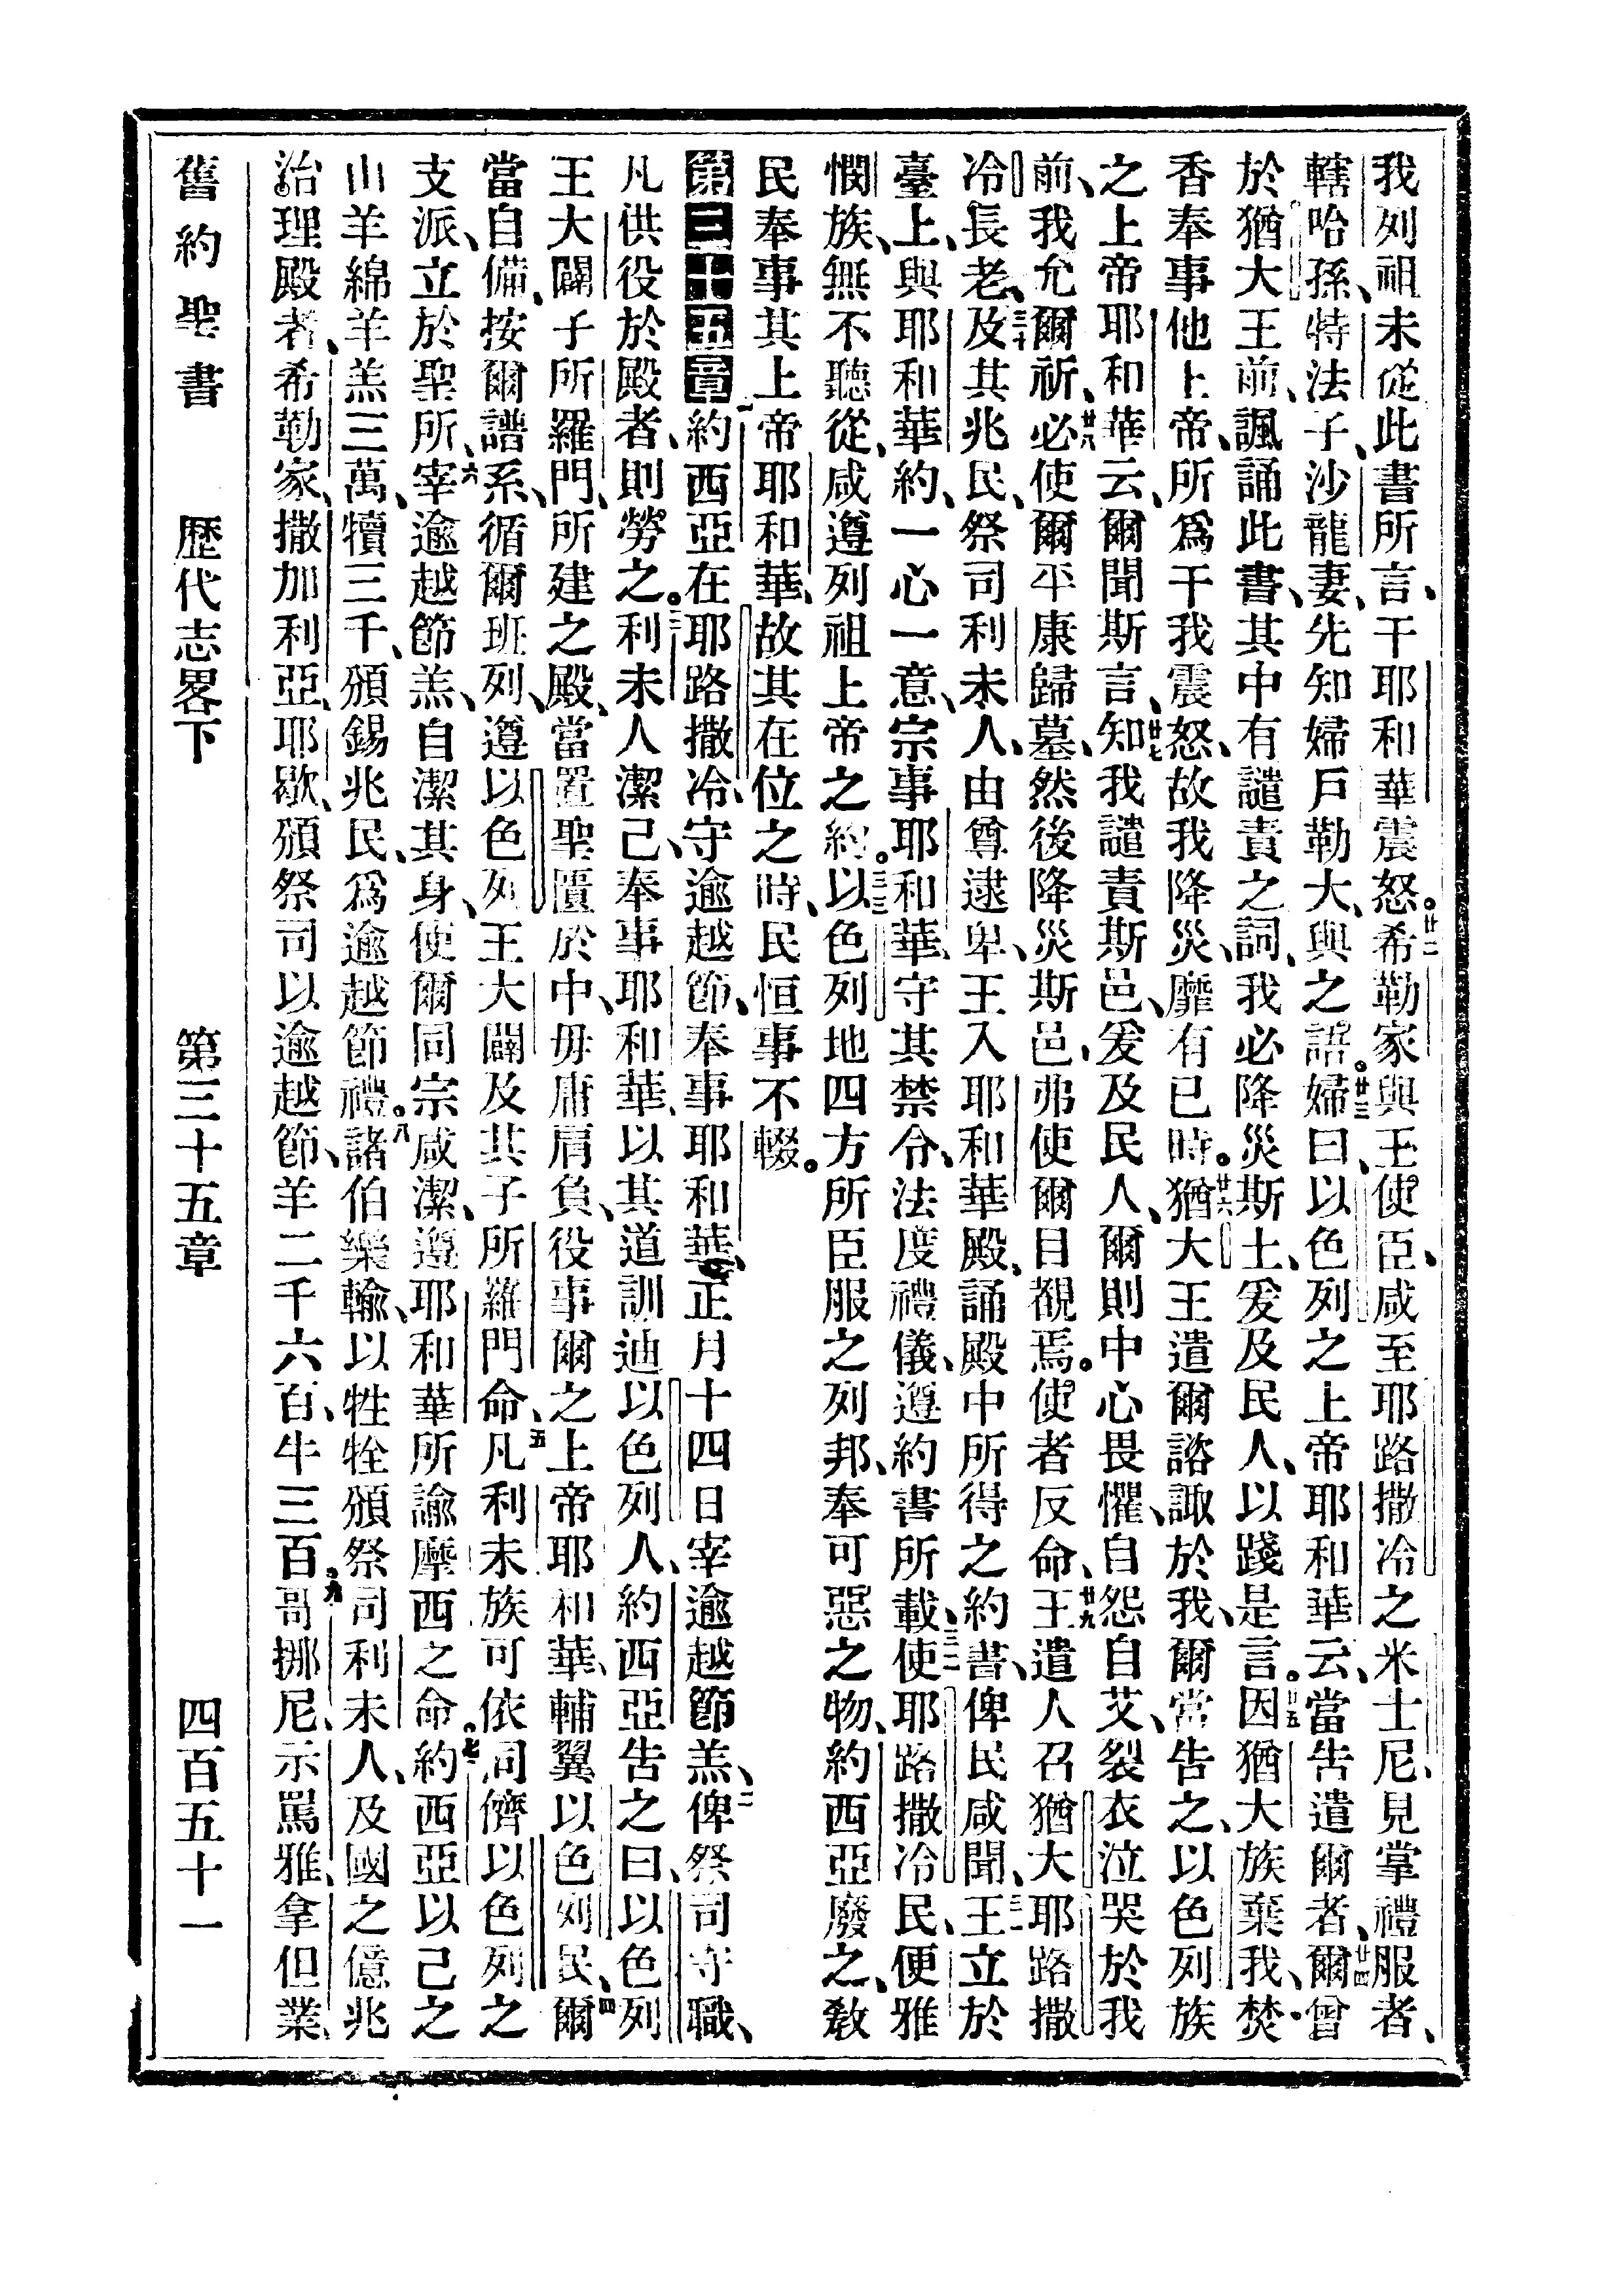 我列祖未從此書所言、干耶和華震怒。廿二希勒家與王使臣、咸至耶路撒冷之米士尼、見掌禮服者、
轄哈孫、特法子、沙龍妻、先知婦戶勒大、與之語。廿三婦曰、以色列之上帝耶和華云、當告遣爾者、廿四爾曾
於猶大王前、諷誦此書、其中有譴責之詞、我必降災斯土、爰及民人、以踐是言。廿五因猶大族棄我、焚
香奉事他上帝、所爲干我震怒、故我降災、靡有已時。廿六猶大王遣爾諮諏於我、爾當告之、以色列族
之上帝耶和華云、爾聞斯言、廿七知我譴責斯邑、爰及民人、爾則中心畏懼、自怨自艾、裂衣泣哭於我
前、我允爾祈、廿八必使爾平康歸墓、然後降災斯邑、弗使爾目覩焉。使者反命、廿九王遣人召猶大耶路撒
冷長老、三十及其兆民、祭司利未人、由尊逮卑、王入耶和華殿、誦殿中所得之約書、俾民咸聞、三一王立於
臺上、與耶和華約、一心一意、宗事耶和華、守其禁令、法度禮儀、遵約書所載、三二使耶路撒冷民、便雅
憫族、無不聽從、咸遵列祖上帝之約。三三以色列地四方所臣服之列邦、奉可惡之物、約西亞廢之、敎
民奉事其上帝耶和華、故其在位之時、民恒事不輟。
第三十五章一約西亞在耶路撒冷、守逾越節、奉事耶和華、正月十四日宰逾越節羔、二俾祭司守職、
凡供役於殿者、則勞之。三利未人潔己、奉事耶和華、以其道訓迪以色列人、約西亞告之曰、以色列
王大闢子所羅門、所建之殿、當置聖匱於中、毋庸肩負、役事爾之上帝耶和華、輔翼以色列民、四爾
當自備、按爾譜系、循爾班列、遵以色列王大闢及其子所羅門命、五凡利未族可依同儕以色列之
支派、立於聖所、六宰逾越節羔、自潔其身、使爾同宗咸潔、遵耶和華所諭摩西之命。七約西亞以己之
山羊綿羊羔三萬、犢三千、頒錫兆民、爲逾越節禮。八諸伯樂輸、以牲牷頒祭司利未人、及國之億兆
治理殿者、希勒家、撒加利亞、耶歇、頒祭司以逾越節、羊二千六百、牛三百。九哥挪尼、示罵雅、拿但業、
舊約聖書　歷代志畧下　第三十五章　四百五十一